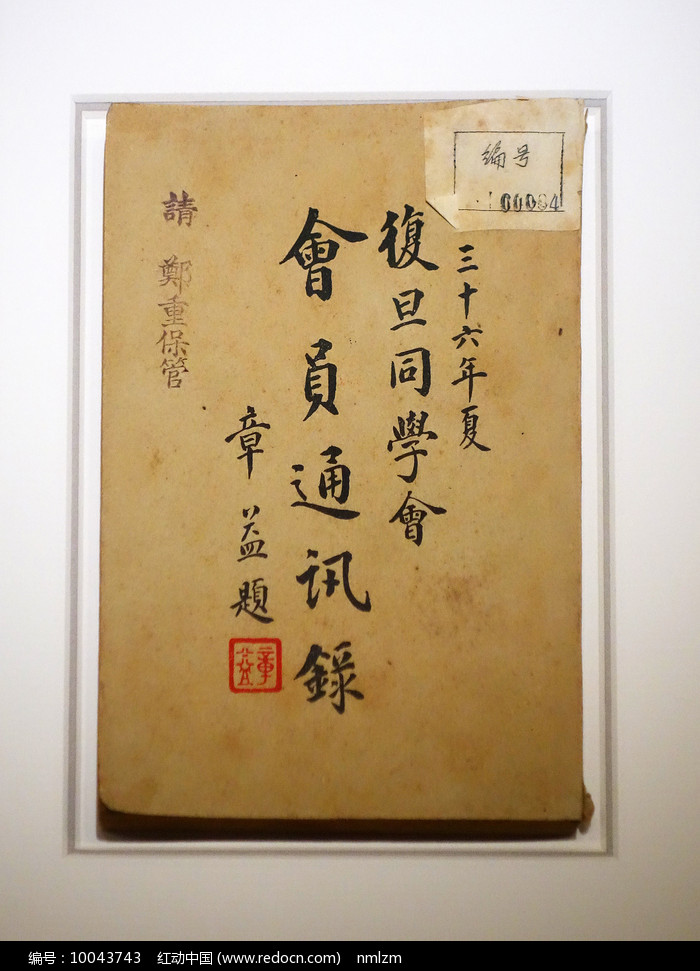 编号
100064
三十六年夏
復旦同學會
會員通訊錄
章益題
章益
請 鄭重保管
编号：10043743 红动中国 (www.redocn.com) nmlzm